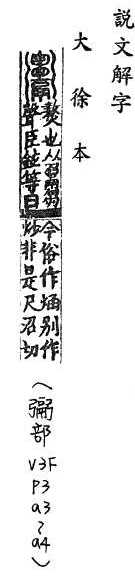 說文解字
大徐本
熬也从䰜芻
聲臣鉉等曰
今俗作煼别作
炒非是尺沼切
(䰜部 V3F P3 a3~a4)